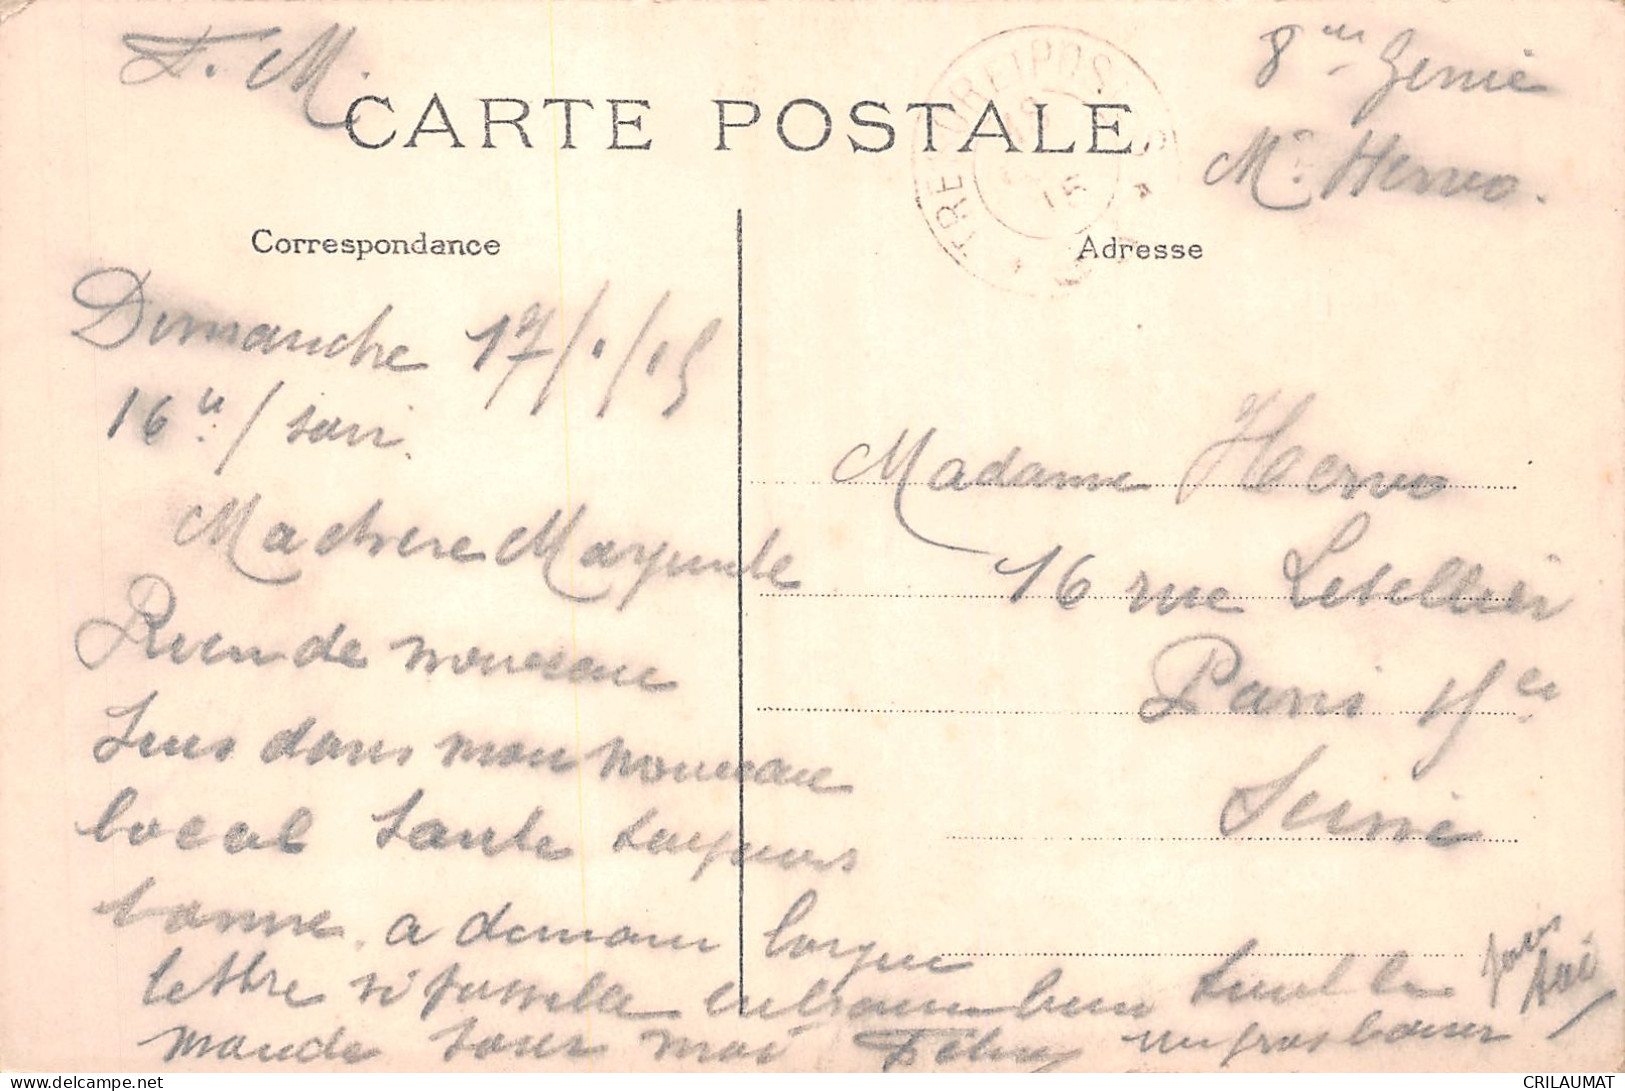 F. M.
8me Génie
Mr Hervo.
CARTE POSTALE
TRESOR ET POSTES
18
15
Correspondance
Adresse
Dimanche 17/1/15
16h/ soir.
Ma chère Marguerite
Rien de nouveau
Suis dans mon nouveau
local Santé toujours
bonne. a demain longue
lettre si possible embrasse bien tout le
monde pour moi un gros baiser
Madame Hervo
16 rue Letellier
Paris 15e
Seine